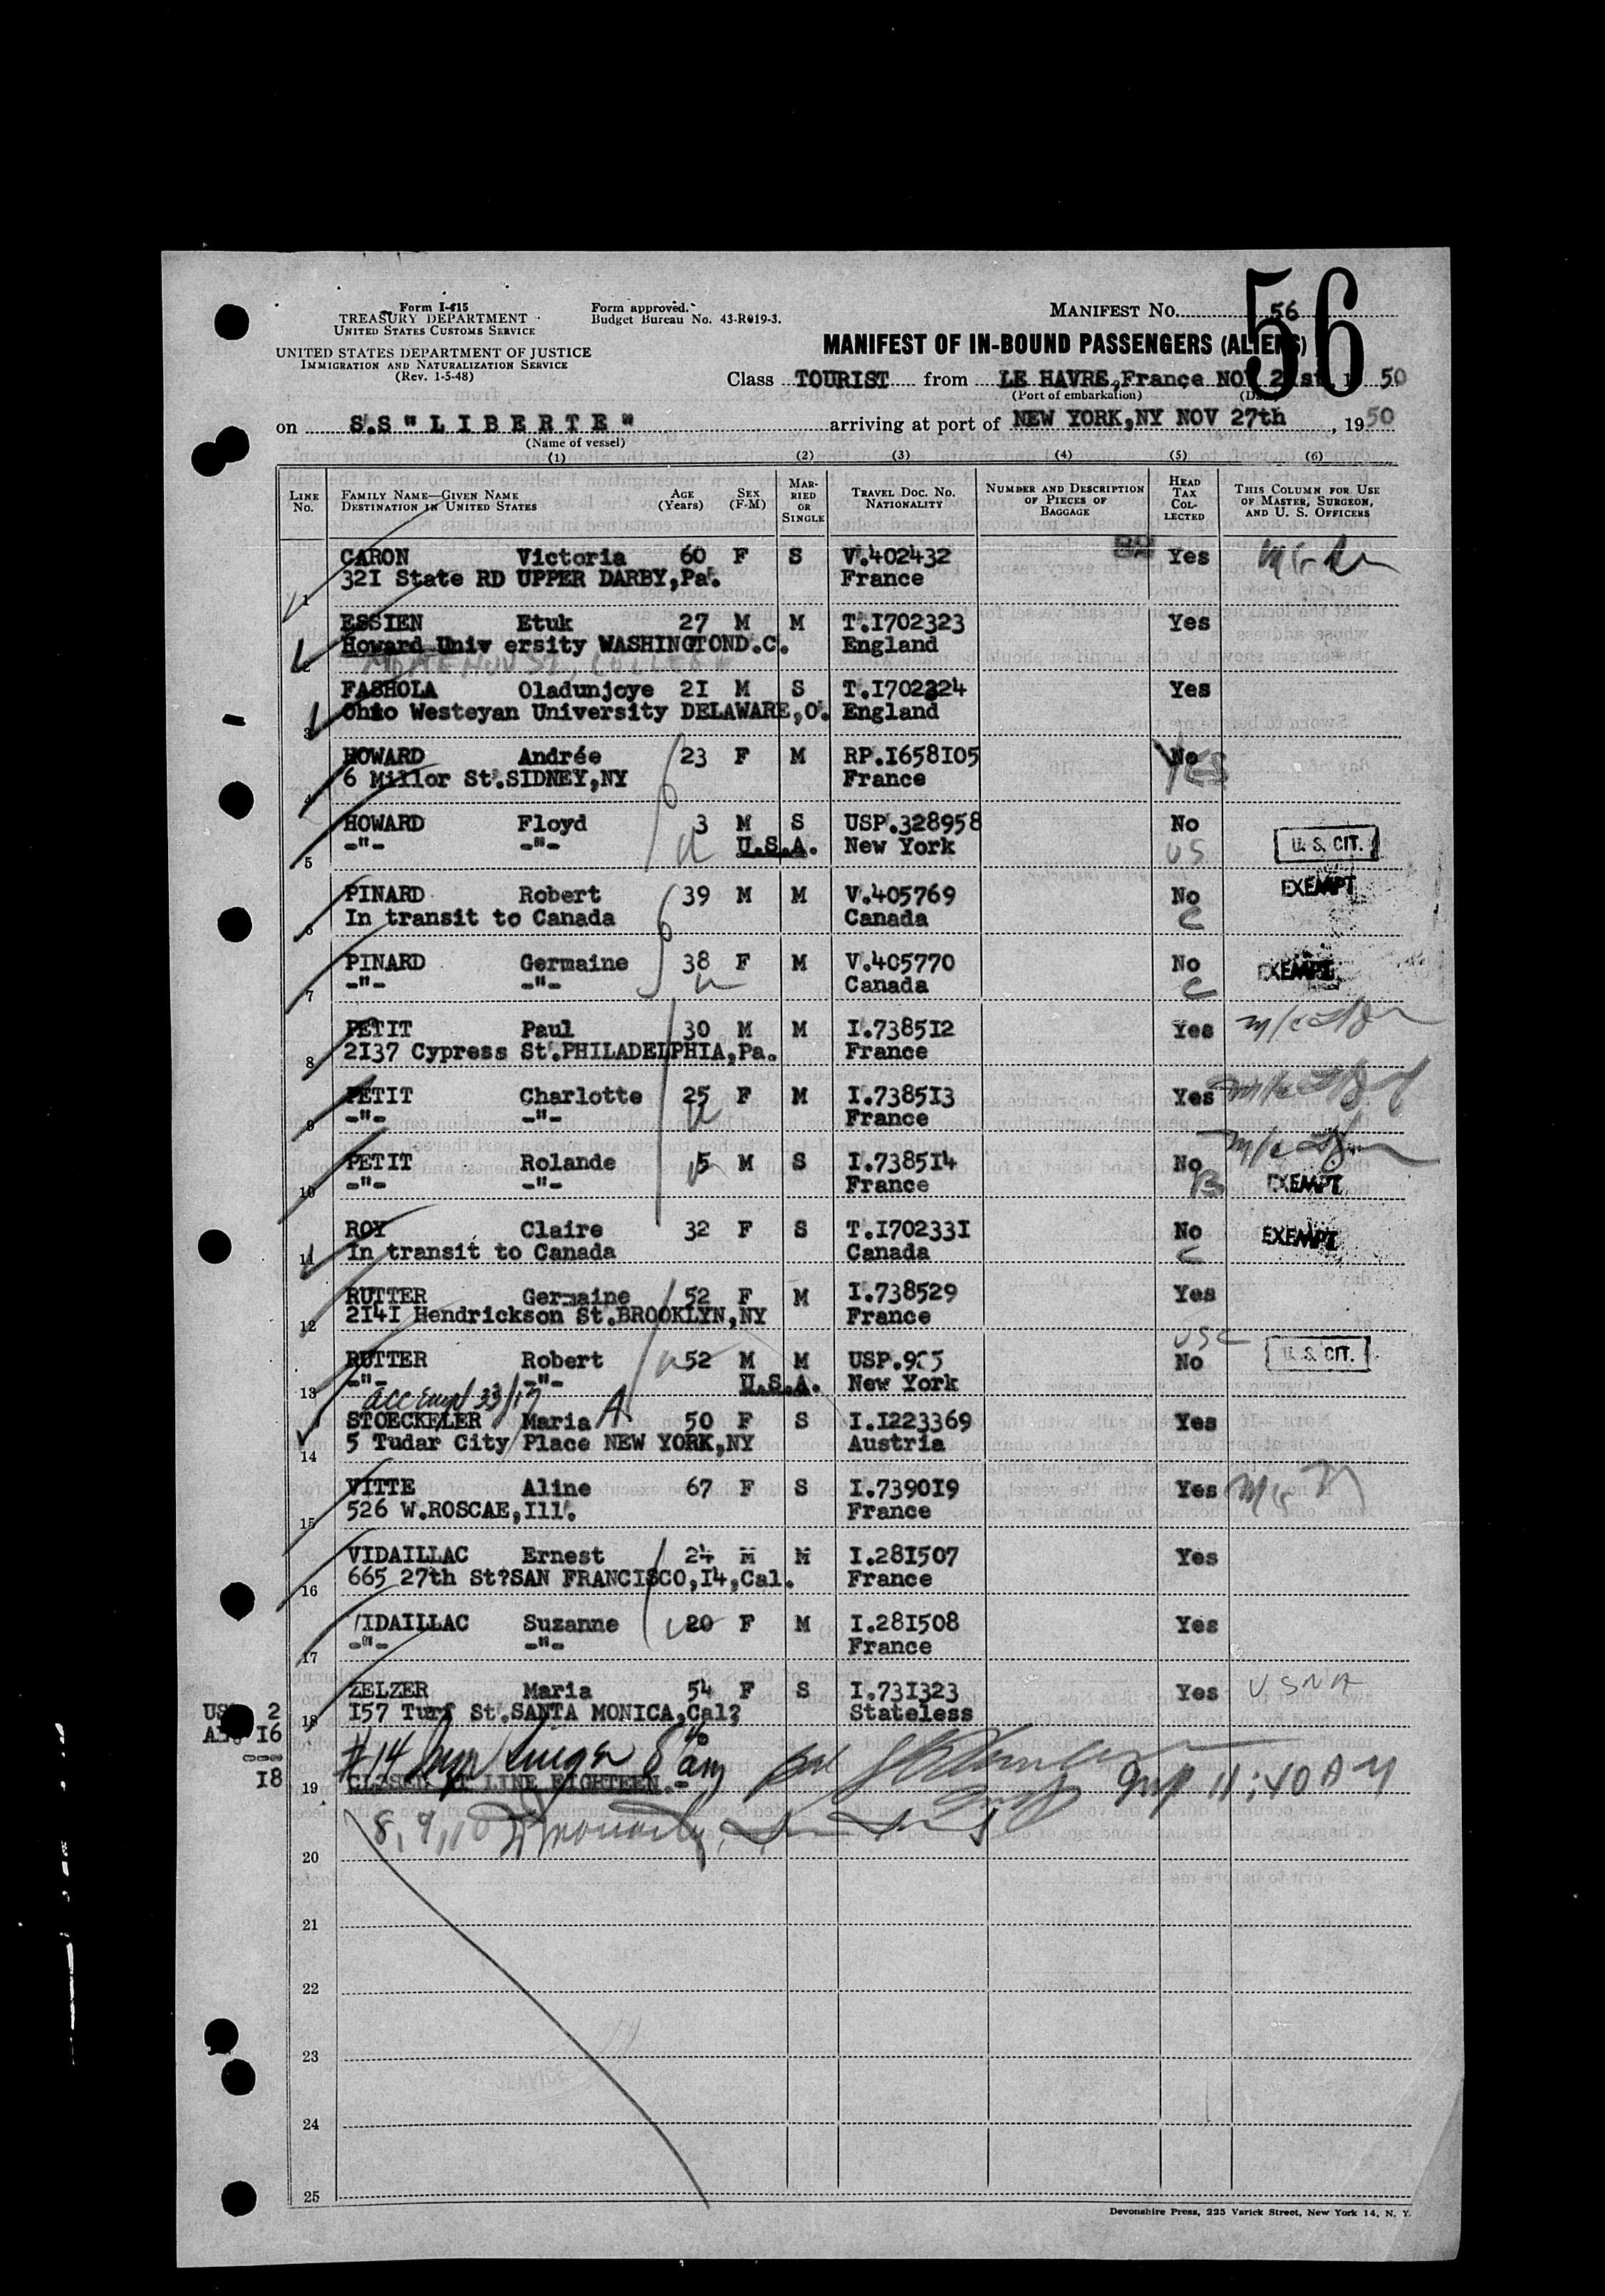 56
Form I-415
TREASURY DEPARTMENT
UNITED STATES CUSTOMS SERVICE
Form approved.
Budget Bureau No. 43-R019-3.
MANIFEST NO. 56
UNITED STATES DEPARTMENT OF JUSTICE
IMMIGRATION AND NATURALIZATION SERVICE
(Rev. 1-5-48)
MANIFEST OF IN-BOUND PASSENGERS (ALIENS)
Class TOURIST from LE HAVRE,France NOV 21st, 1950
(Port of embarkation) (Date)
on S.S "LIBERTE" arriving at port of NEW YORK,NY NOV 27th, 1950
(Name of vessel)
(1) (2) (3) (4) (5) (6)
LINE No. FAMILY NAME—GIVEN NAME DESTINATION IN UNITED STATES AGE (Years) SEX (F-M) MARRIED OR SINGLE TRAVEL DOC. NO. NATIONALITY NUMBER AND DESCRIPTION OF PIECES OF BAGGAGE HEAD TAX COLLECTED THIS COLUMN FOR USE OF MASTER, SURGEON, AND U. S. OFFICERS
CARON Victoria 60 F S V.402432 Yes
1 321 State RD UPPER DARBY,Pa. France
ESSIEN Etuk 27 M M T.I702323 Yes
2 Howard Univ ersity WASHINGTOND.C. England
FASHOLA Oladunjoye 2I M S T.I702324 Yes
3 Ohio Westeyan University DELAWARE,O. England
HOWARD Andrée 23 F M RP.I658I05 No YES
4 6 Millor St.SIDNEY,NY France
HOWARD Floyd 3 M S USP.328958 No
5 -"- -"- U.S.A. New York US U. S. CIT.
PINARD Robert 39 M M V.405769 No EXEMPT
6 In transit to Canada Canada C
PINARD Germaine 38 F M V.405770 No EXEMPT
7 -"- -"- Canada C
PETIT Paul 30 M M I.7385I2 Yes
8 2I37 Cypress St.PHILADELPHIA,Pa. France
PETIT Charlotte 25 F M I.7385I3 Yes
9 -"- -"- France
PETIT Rolande 5 M S I.7385I4 No
10 -"- -"- France B EXEMPT
ROY Claire 32 F S T.I70233I No EXEMPT
11 In transit to Canada Canada C
RUTTER Germaine 52 F M I.738529 Yes
12 2I4I Hendrickson St.BROOKLYN,NY France
USC
RUTTER Robert 52 M M USP.905 No U. S. CIT.
13 -"- -"- U.S.A. New York
STOECKELER Maria 50 F S I.I223369 Yes
14 5 Tudar City Place NEW YORK,NY Austria
VITTE Aline 67 F S I.7390I9 Yes
15 526 W.ROSCAE,Ill. France
VIDAILLAC Ernest 24 M M I.28I507 Yes
16 665 27th St?SAN FRANCISCO,I4,Cal. France
VIDAILLAC Suzanne 20 F M I.28I508 Yes
17 -"- -"- France
ZELZER Maria 54 F S I.73I323 Yes USNA
18 I57 Turf St.SANTA MONICA,Cal? Stateless
2
I6
---
I8
#14
19 CLOSED AT LINE EIGHTEEN.- 11:40 AM
8, 9, 10
20
21
22
23
24
25
Devonshire Press, 225 Varick Street, New York 14, N. Y.